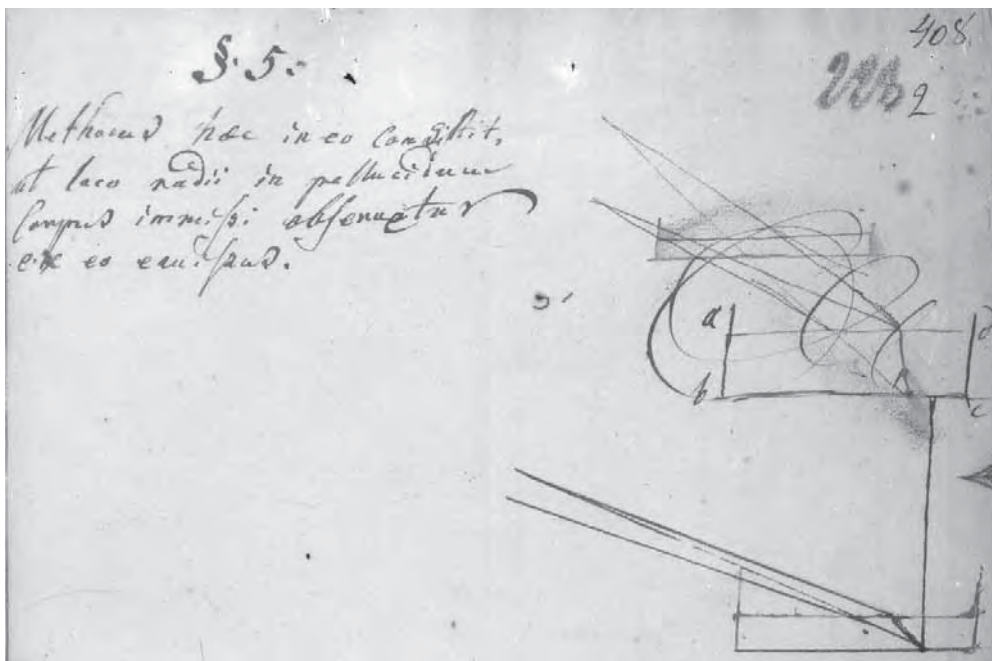 408
2
§. 5.
Methodus hæc in eo consistit,
ut loco radii in pellucidum
Corpus immissi observetur
ex eo emissus.
a
d
b
c